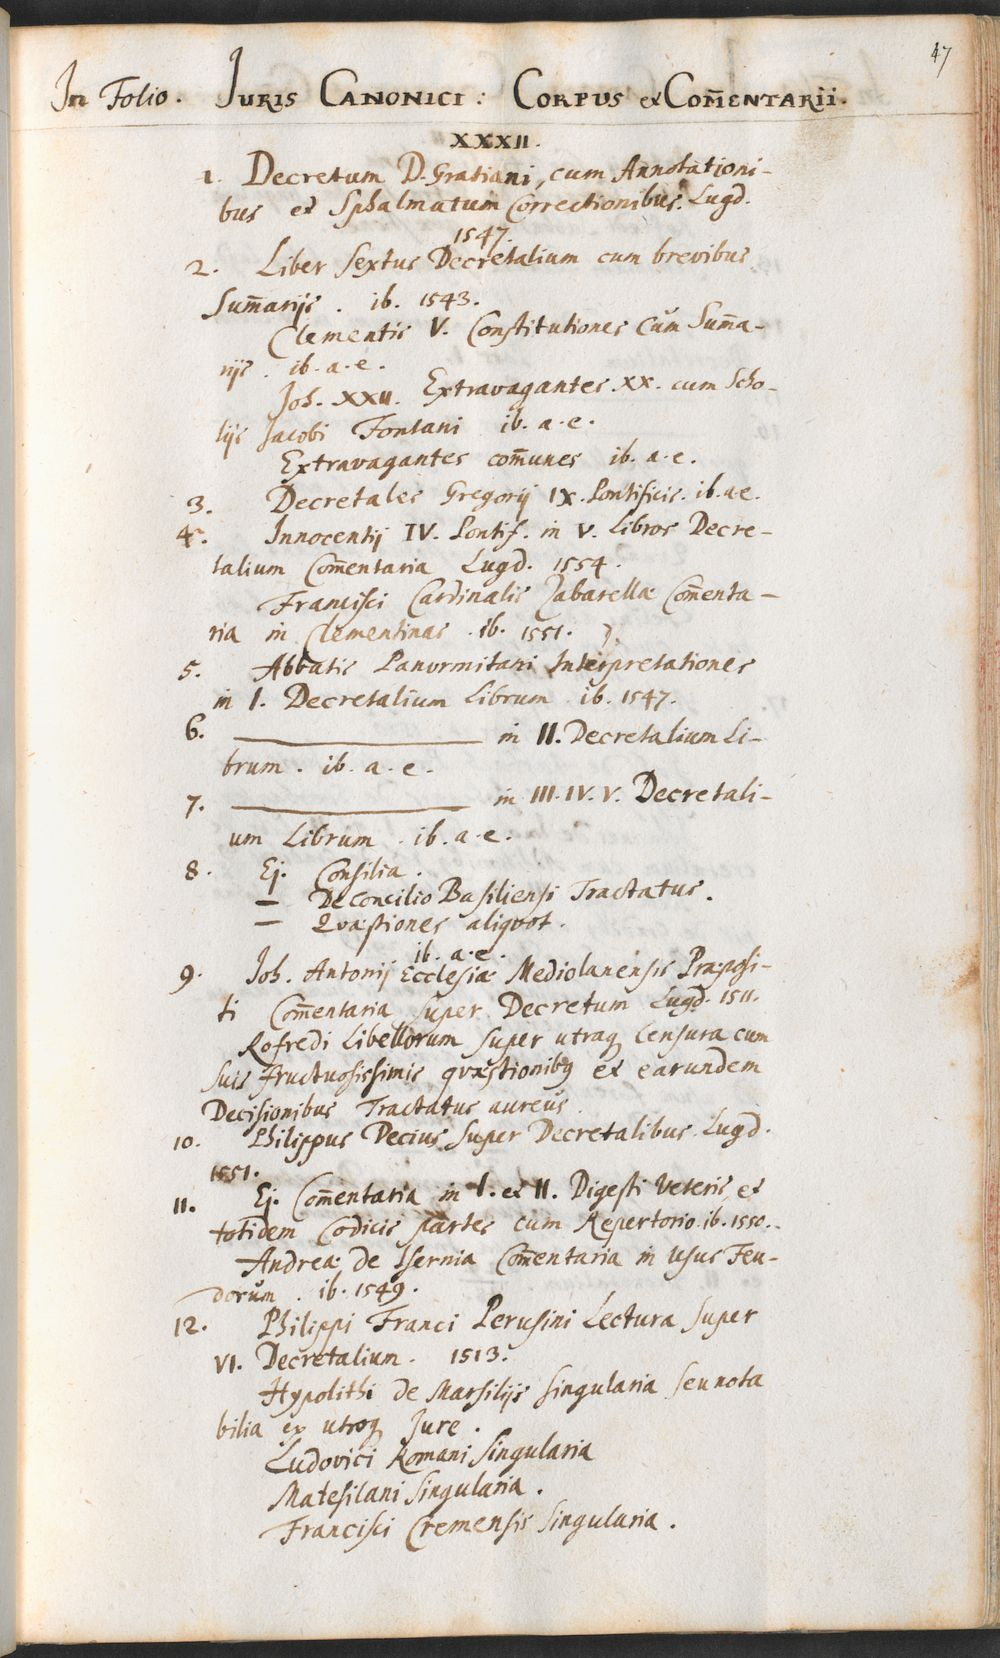 47
In Folio. Juris Canonici: Corpus et Com̄entarii.
XXXII.
1. Decretum D. Gratiani, cum Annotationi-
bus et Sphalmatum Correctionibus. Lugd.
1547.
2. Liber Sextus Decretalium cum brevibus
Sum̄arijs. ib. 1543.
Clementis V. Constitutiones cum Sum̄a-
rijs. ib. a. e.
Joh. XXII. Extravagantes XX. cum Scho-
lijs Jacobi Fontani ib. a. e.
Extravagantes com̄unes ib. a. e.
3. Decretales Gregorij IX. Pontificis. ib. a e.
4. Innocentij IV. Pontif. in V. Libros Decre-
talium Com̄entaria Lugd. 1554.
Francisci Cardinalis Zabarellæ Com̄enta-
ria in Clementinas. ib. 1551.
5. Abbatis Panormitani Interpretationes
in I. Decretalium Librum. ib. 1547.
6. ——— in II. Decretalium Li-
brum. ib. a. e.
7. ——— in III. IV. V. Decretali-
um Librum. ib. a. e.
8. Ej. Consilia.
— De Concilio Basiliensi Tractatus.
— Quæstiones aliquot.
ib. a. e.
9. Joh. Antonij Ecclesiæ Mediolanensis Præposi-
ti Com̄entaria super Decretum Lugd. 1511.
Rofredi Libellorum super utraq Censura cum
suis fructuosissimis quæstionibq et earundem
Decisionibus Tractatus aureus.
10. Philippus Decius super Decretalibus. Lugd.
1551.
11. Ej. Com̄entaria in I. et II. Digesti Veteris, et
totidem Codicis partes cum Repertorio. ib. 1550.
Andreæ de Isernia Com̄entaria in Usus Feu-
dorum. ib. 1549.
12. Philippi Franci Perusini Lectura super
VI. Decretalium. 1513.
Hypolithi de Marsilijs singularia seu nota
bilia ex utroq Jure.
Ludovici Romani Singularia
Matesilani Singularia.
Francisci Cremensis Singularia.